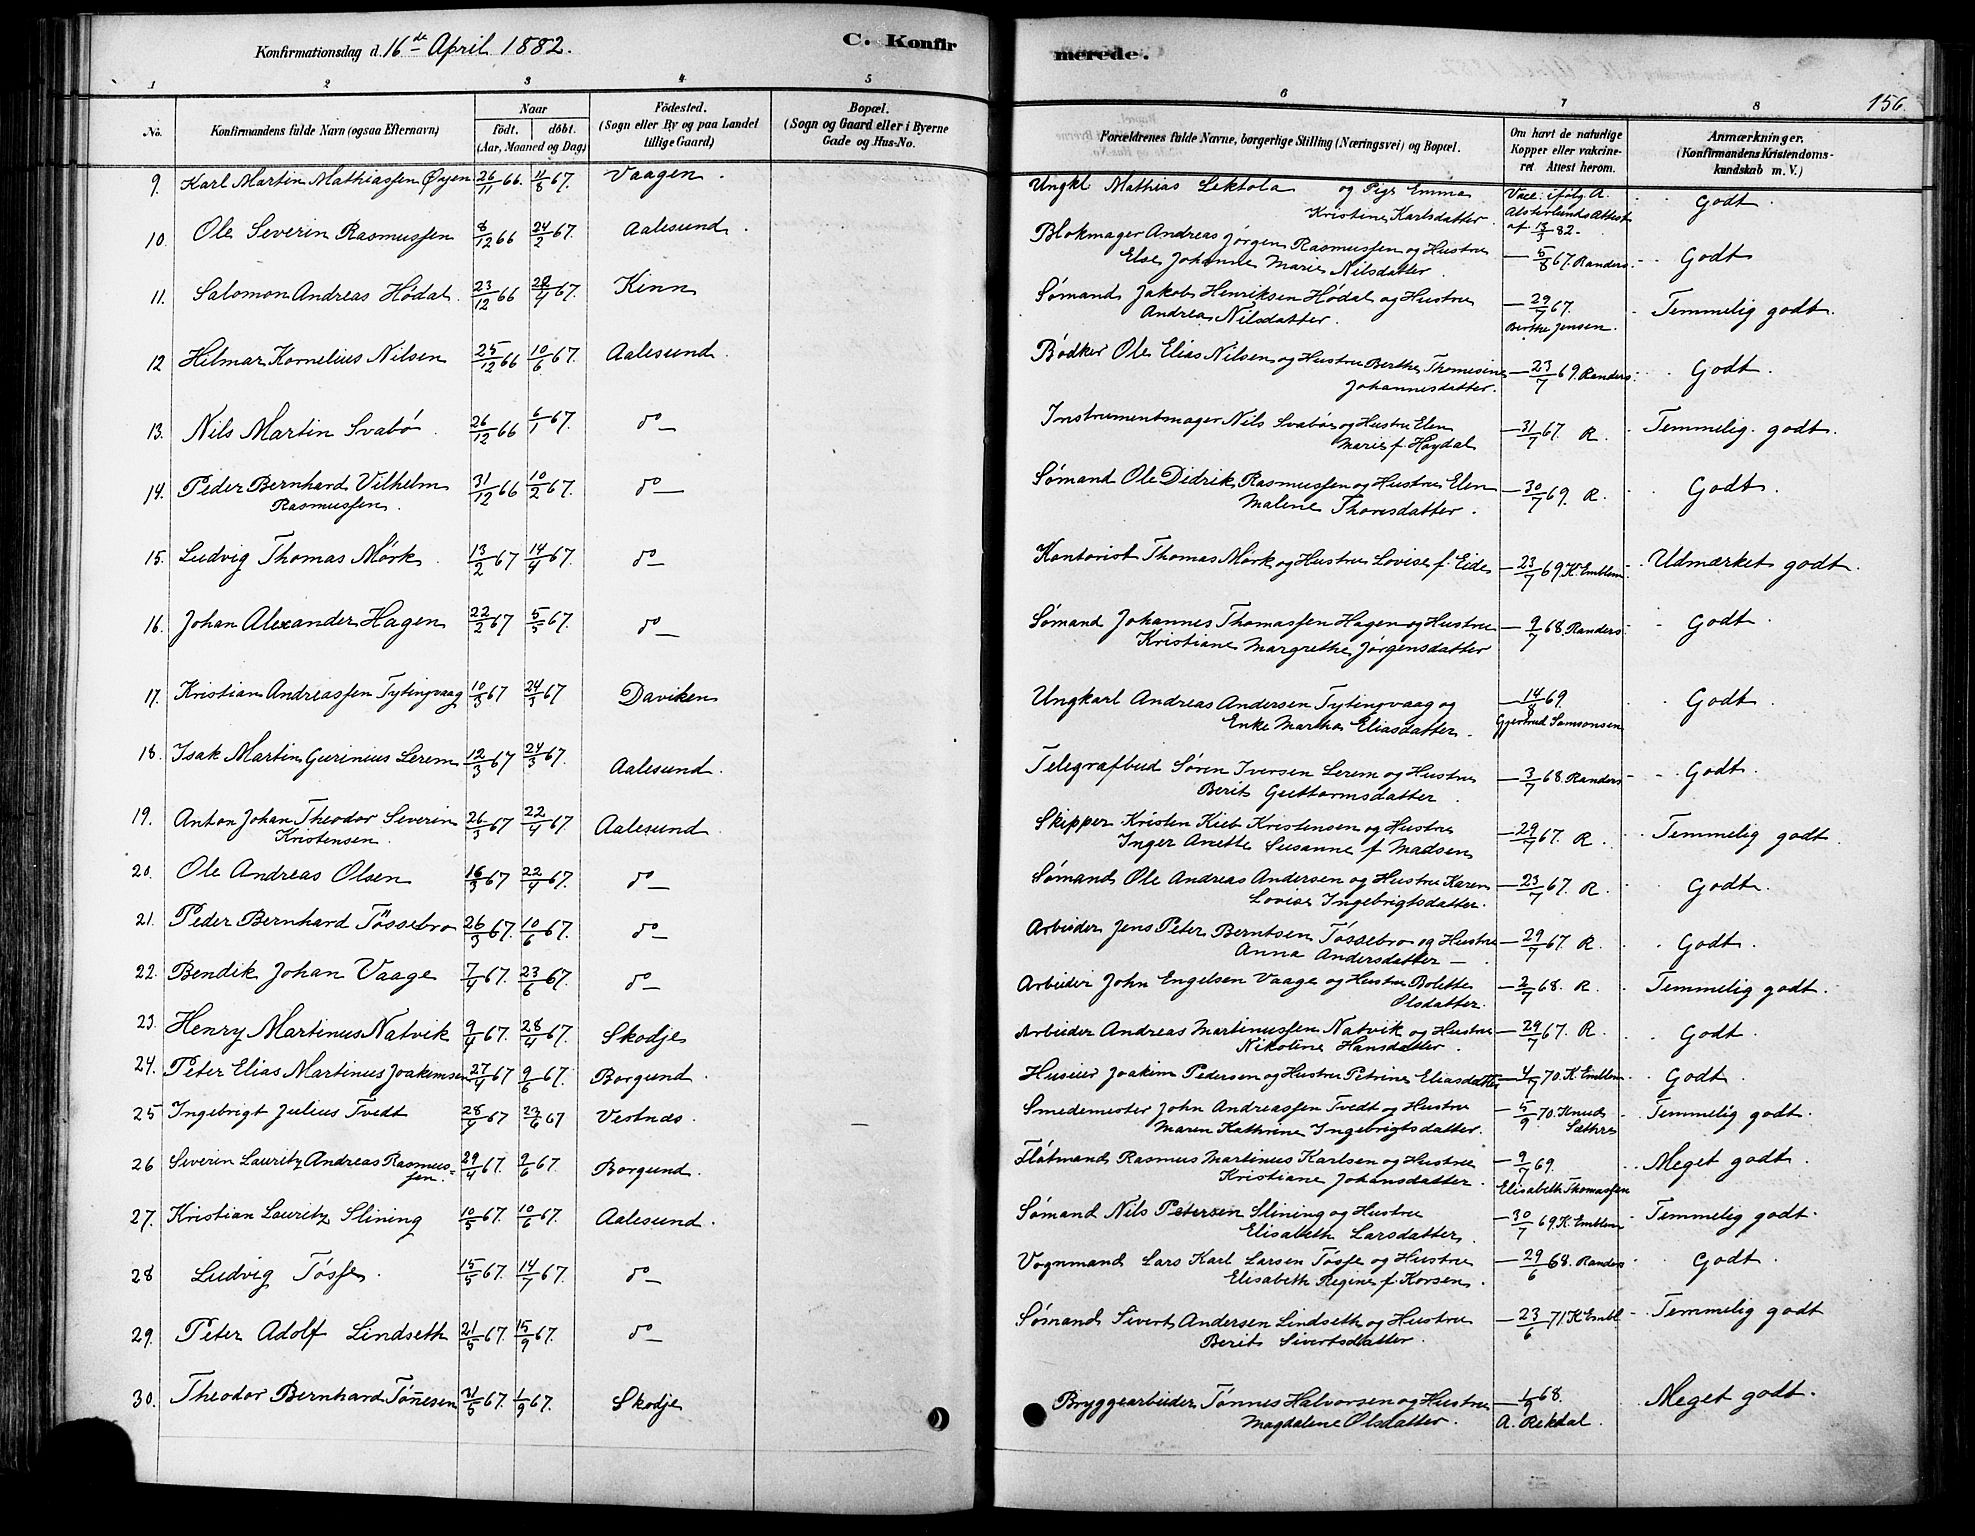 Konfirmationsdag d. 16de April 1882.
C. Konfir
merede.
156.
1 2 3 4 5 6 7 8
No.
Konfirmandens fulde Navn (ogsaa Efternavn)
Naar
født. døbt.
(Aar, Maaned og Dag)
Fødested.
(Sogn eller By og paa Landet
tillige Gaard)
Bopæl.
(Sogn og Gaard eller i Byerne
Gade og Hus-No.
Forældrenes fulde Navne, borgerlige Stilling (Næringsvei) og Bopæl.
Om havt de naturlige
Kopper eller vakcine-
ret Attest herom.
Anmærkninger.
(Konfirmandens Kristendoms-
kundskab m. V.)
9. Karl Martin Mathiassen Øyen 26/11 66. 67. Vaagen. Ungkl Mathias Lektola og Pige Emma Vacc. ifølg A. Godt.
Kristine Karlsdatter. Attest
af 82.
10. Ole Severin Rasmussen 8/12 66 24/2 67. Aalesund. Blokmager Andreas Jørgen Rasmussen og Hustru — 5/8 67. Randers. Godt
Else Johanne Marie Nilsdatter.
11. Salomon Andreas Hødal. 23/12 66 67. Kinn Sømand Jakob Henriksen Hødal og Hustru — 29/7 67. Temmelig godt.
Andrea Nilsdatter. Berthe Jensen.
12 Hilmar Kornelius Nilsen 25/12 66 10/6 67. Aalesund. Bødker Ole Elias Nilsen og Hustru Berthe Thomesine — 23/7 69. Randers. Godt.
Johannesdatter.
13. Nils Martin Svabø. 26/12 66 6/1 67. do — Instrumentmager Nils Svabø og Hustru Elen — 31/7 67. R. Temmelig godt.
Marie f. Høydal
14. Peder Bernhard Vilhelm 31/12 66 10/2 67. do — Sømand Ole Didrik Rasmussen og Hustru Elen — 30/7 69. R. Godt.
Rasmussen. Malene Thoresdatter.
15. Ludvig Thomas Mørk. 13/2 67 14/4 67. do — Kontorist Thomas Mørk og Hustru Lovise f. Eide — 23/7 69 K. Emblem. Udmærket godt.
16. Johan Alexander Hagen 22/2 67 5/5 67. do — Sømand Johannes Thomassen Hagen og Hustru — 9/7 68. Randers. Godt.
Kristiane Margrethe Jørgensdatter
17. Kristian Andreassen Tytingvaag 10/3 67 24/3 67 Daviken Ungkarl Andreas Andersen Tytingvaag og — 14/8 69. Godt.
Enke Martha Eliasdatter. Gjertrud Samsonsen
18. Isak Martin Guerinius Lerem 12/3 67 24/3 67. Aalesund. Telegrafbud Søren Iversen Lerem og Hustru — 3/7 68. Randers Godt.
Berit Guttormsdatter.
19. Anton Johan Theodor Severin 26/3 67 22/4 67. Aalesund. Skipper Kristen Kieb Kristensen og Hustru — 29/7 67. R. Temmelig godt.
Kristensen. Inger Anette Susanne f. Madsen
20. Ole Andreas Olsen 16/3 67 22/4 67. do — Sømand Ole Andreas Andersen og Hustru Karen — 23/7 67. R. Godt.
Lovise Ingebrigtsdatter.
21. Peder Bernhard Tøssebro 26/3 67. 10/6 67. do — Arbeider Jens Peter Berntsen Tøssebro og Hustru — 29/7 67. R. Godt.
Anna Andersdatter —
22. Bendik Johan Vaage 7/4 67. 23/6 67. do — Arbeider John Engelsen Vaage og Hustru Bolette — 2/7 68. R. Temmelig godt.
Olsdatter.
23. Henry Martinus Natvik 9/4 67. 28/4 67. Skodje Arbeider Andreas Martinussen Natvik og Hustru — 29/7 67. R. Godt
Nikoline Hansdatter.
24. Peter Elias Martinus Joakimsen 27/4 67 9/6 67. Borgund. Huseier Joakim Pedersen og Hustru Petrine Eliasdatter — 70. K. Emblem. Godt.
25 Ingebrigt Julius Tvedt 28/4 67 23/6 67 Vestnæs. Smedemester John Andreassen Tvedt og Hustru — 5/9 70. Knud Temmelig godt.
Maren Kathrine Ingebrigtsdatter. Sæthre
26 Severin Lauritz Andreas Rasmus- 29/4 67. 9/6 67. Borgund. Fløtmand Rasmus Martinus Karlsen og Hustru — 9/7 69. Meget godt.
sen. Kristiane Johansdatter. Elisabeth Thomassen
27. Kristian Lauritz Slining 10/5 67. 10/6 67. Aalesund. Sømand Nils Petersen Slining og Hustru — 30/7 69 K. Emblem Temmelig godt.
Elisabeth Larsdatter.
28 Ludvig Tøsse. 15/5 67. 14/7 67. do — Vognmand Lars Karl Larsen Tøsse og Hustru — 29/6 68. Randers Godt.
Elisabeth Regine f. Korsen.
29. Peter Adolf Lindseth 21/5 67. 15/9 67. do — Sømand Sivert Andersen Lindseth og Hustru — 23/6 71 K Embl. Temmelig godt
Berit Sivertsdatter.
30. Theodor Bernhard Tønnesen 21/5 67. 1/9 67. Skodje Bryggearbeider Tønnes Halvorsen og Hustru — 68. Meget godt.
Magdalene Olsdatter. A. Rekdal.